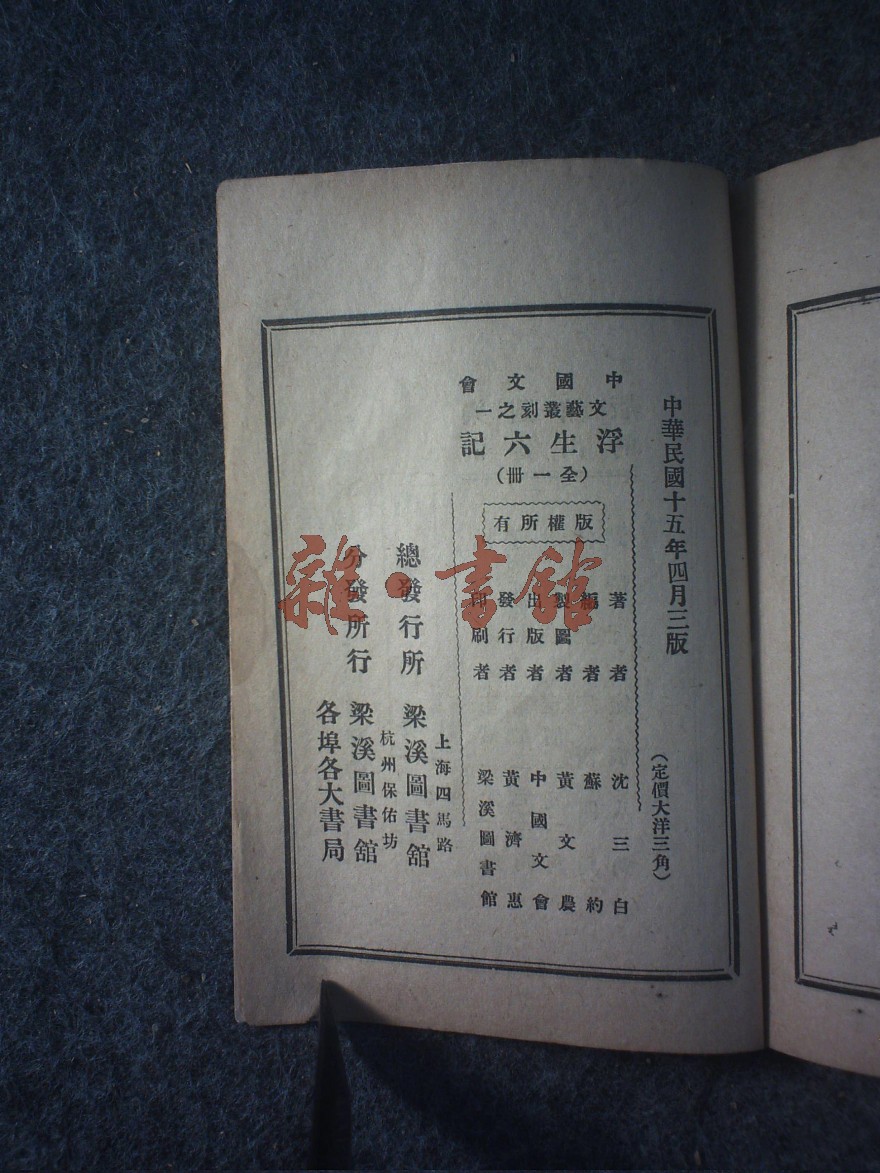 中華民國十五年四月三版
(定價大洋三角)
中國文會
文藝叢刻之一
浮生六記
(全一冊)
版權所有
著者 沈三白
編者 蘇約
製圖者 黃文農
出版者 中國文會
發行者 黃濟惠
印刷者 梁溪圖書館
上海四馬路
總發行所 梁溪圖書舘
杭州保佑坊
分發所行 梁溪圖書舘
各埠各大書局
雜·書館